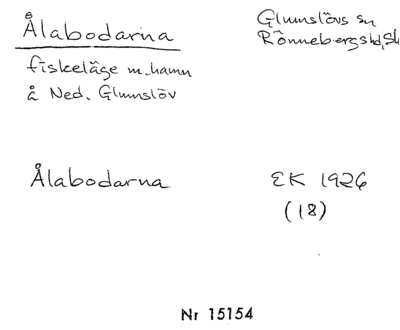 Ålabodarna
Glumslövs sn
Rönnebergshd, Sk
fiskeläge m. hamn
å Ned. Glumslöv
Ålabodarna
EK 1926
(18)
Nr 15154